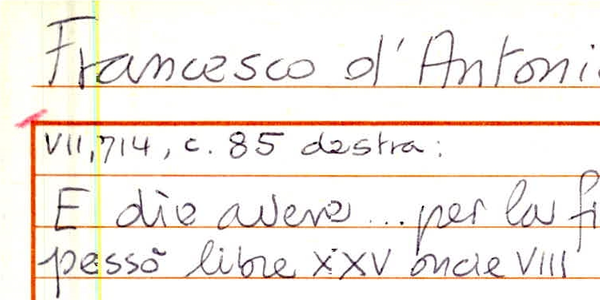 Francesco d'Antoni
VII, 714, c. 85 destra:
E die avere... per la fi
pessò libre XXV oncie VIII